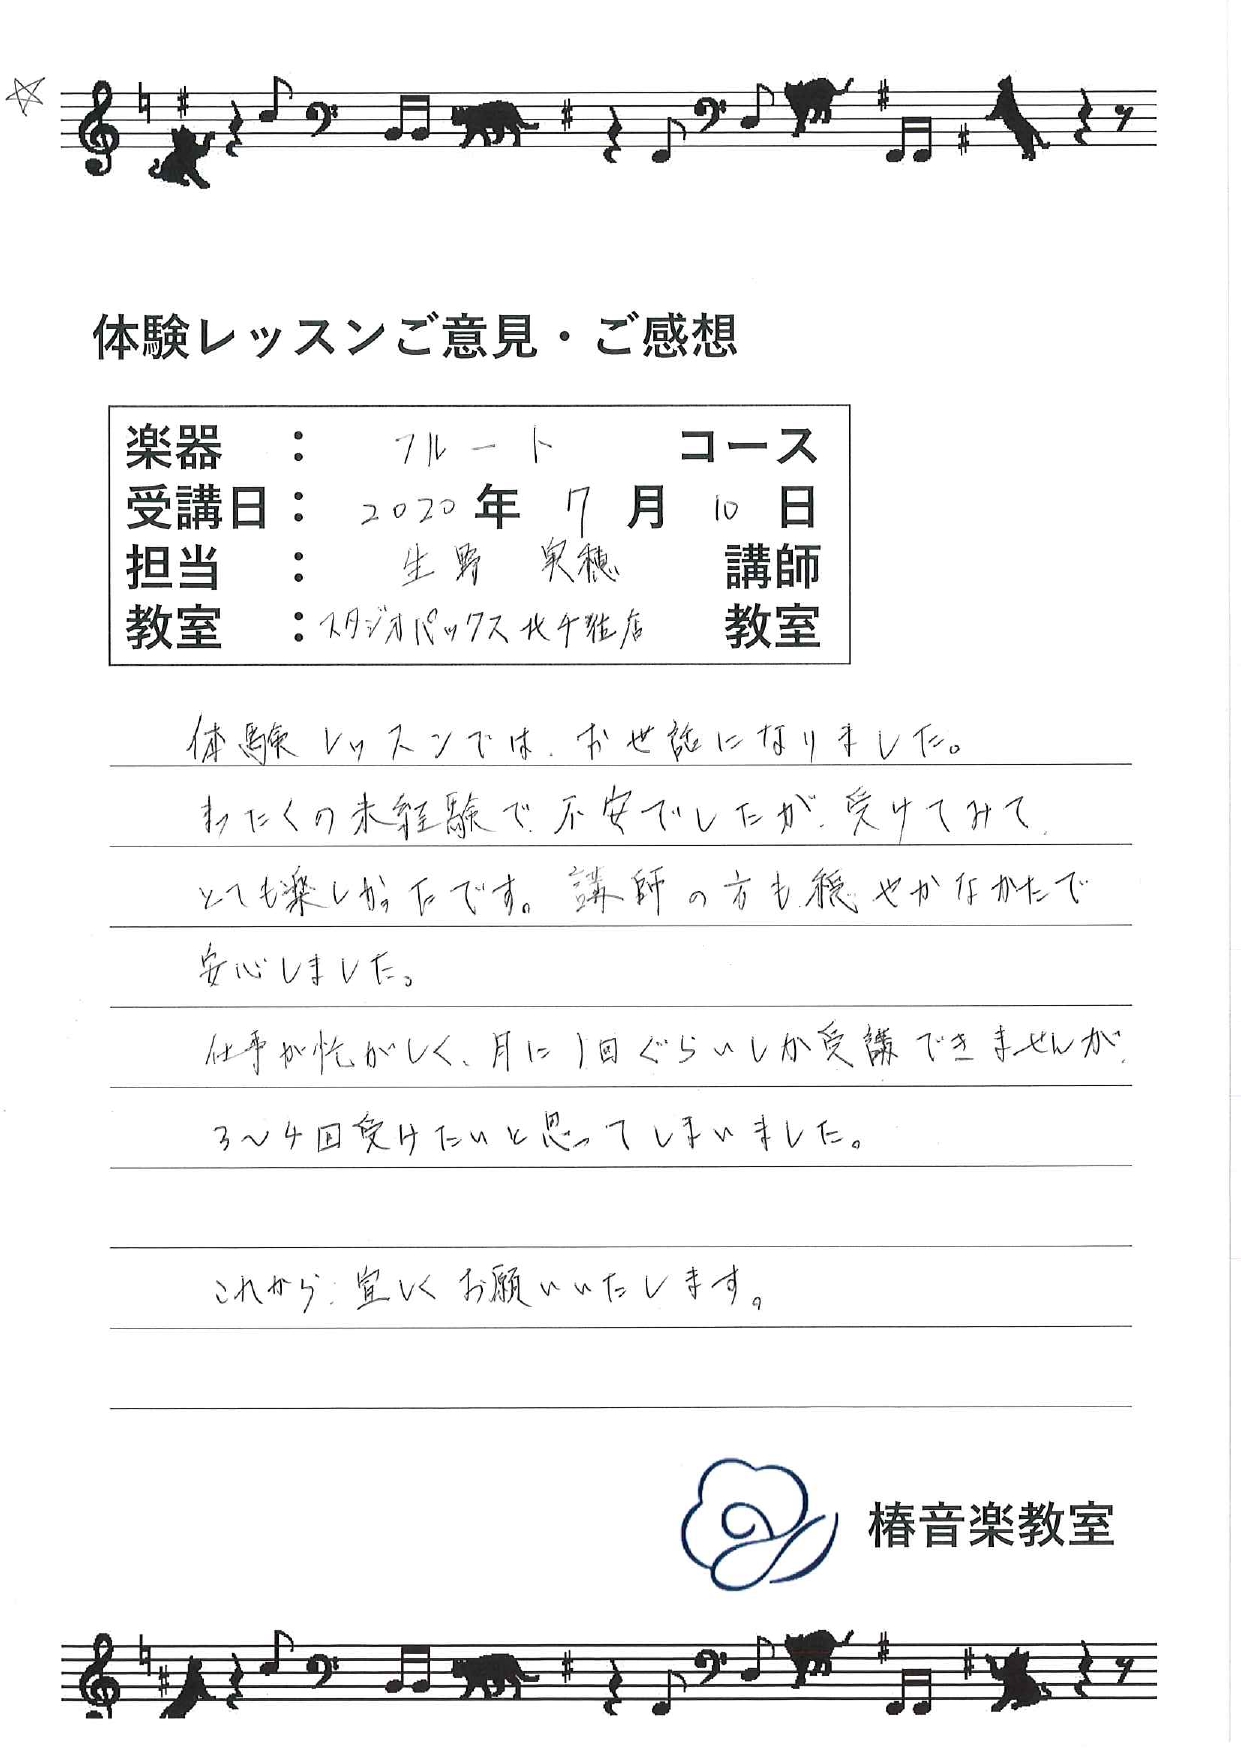 体験レッスンご意見・ご感想
楽器 : フルート コース
受講日: 2020 年 7 月 10 日
担当 : 生野 実穂 講師
教室 : スタジオパックス北千住店 教室
体験レッスンでは、お世話になりました。
まったくの未経験で、不安でしたが、受けてみて、
とても楽しかったです。講師の方も穏やかなかたで
安心しました。
仕事が忙がしく、月に1回ぐらいしか受講できませんが、
3〜4回受けたいと思ってしまいました。
これから、宜しくお願いいたします。
椿音楽教室